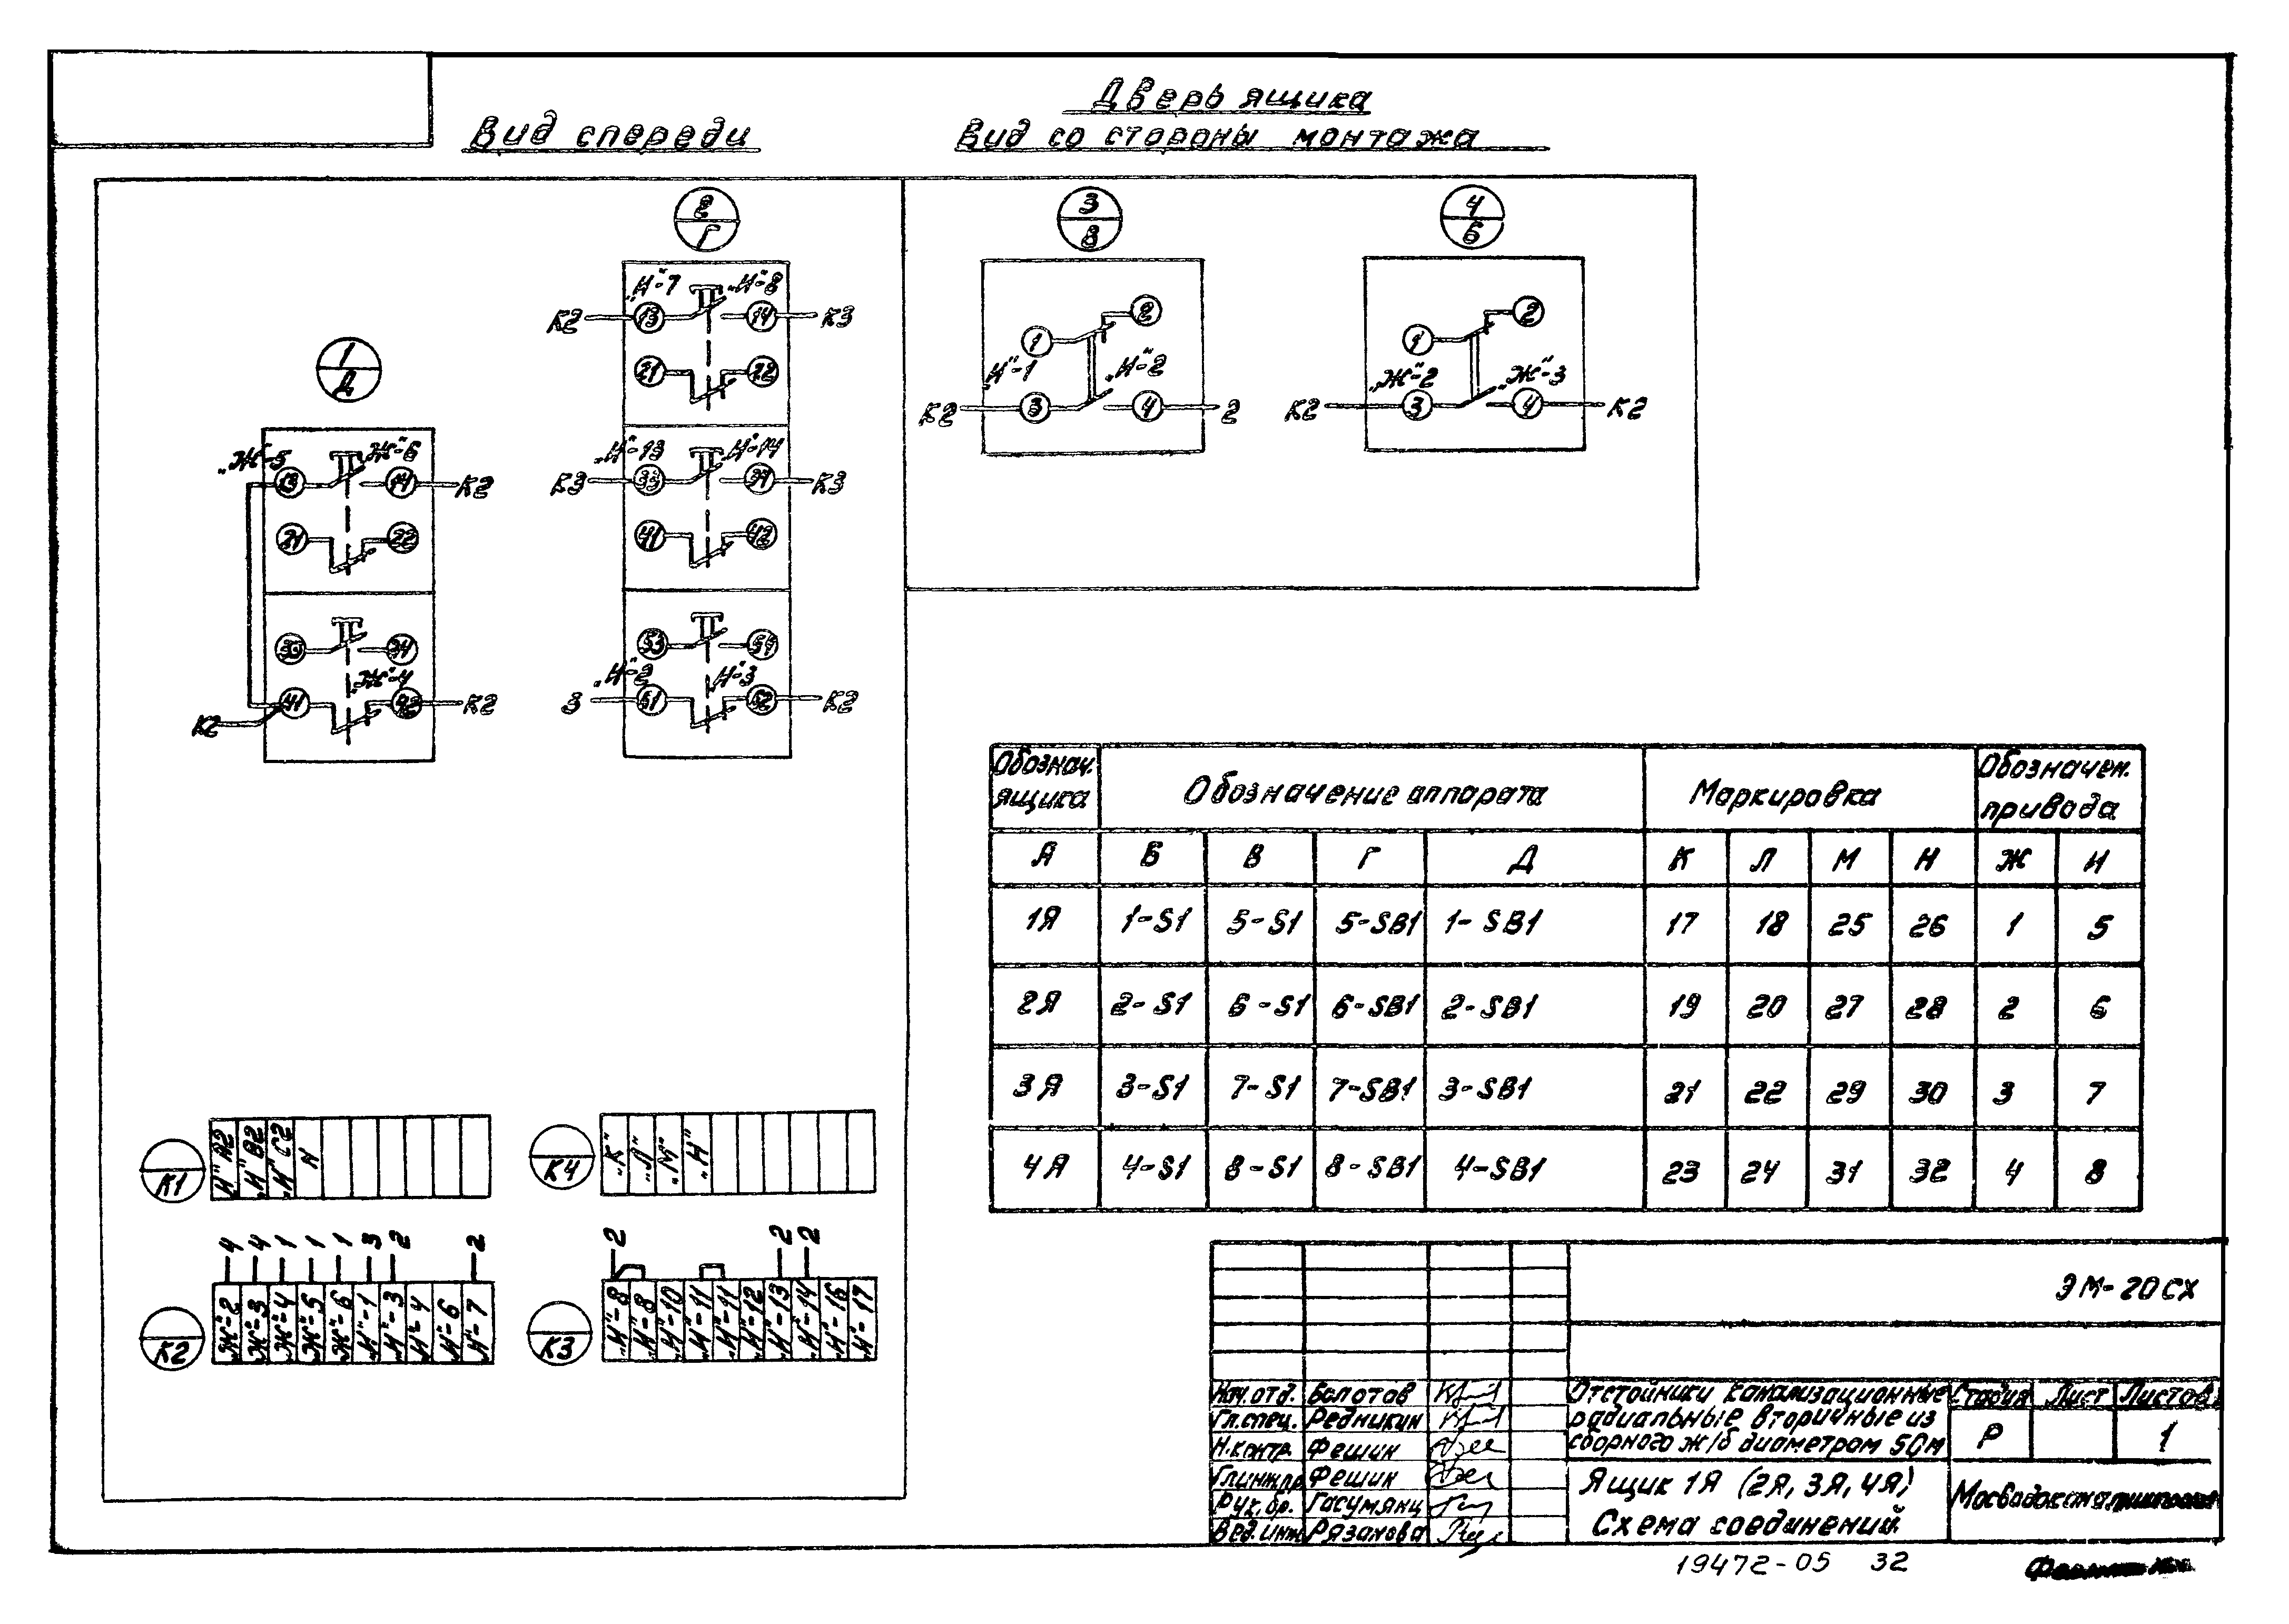 Дверь ящика
Вид спереди
Вид со стороны монтажа
1
Д
„Ж"-5
„Ж"-6
13
14
К2
21
22
33
34
„Ж"-4
41
42
К2
К2
2
Г
„И"-7
„И"-8
К2
13
14
К3
21
22
„И"-13
„И"-14
К3
33
34
К3
41
42
53
54
„И"-2
„И"-3
3
61
62
К2
3
В
1
2
„И"-1
„И"-2
К2
3
4
2
4
Б
1
2
„Ж"-2
„Ж"-3
К2
3
4
К2
К1
„И" А2
„И" В2
„И" С2
N
К4
„К"
„Л"
„М"
„Н"
4 4 1 1 1 3 2 2
К2
„Ж"-2
„Ж"-3
„Ж"-4
„Ж"-5
„Ж"-6
„И"-1
„И"-3
„И"-4
„И"-6
„И"-7
2 2 2
К3
„И"-8
„И"-8
„И"-10
„И"-11
„И"-11
„И"-12
„И"-13
„И"-14
„И"-16
„И"-17
Обознач. ящика
Обозначение аппарата
Маркировка
Обозначен. привода
А Б В Г Д К Л М Н Ж И
1Я 1-S1 5-S1 5-SB1 1-SB1 17 18 25 26 1 5
2Я 2-S1 6-S1 6-SB1 2-SB1 19 20 27 28 2 6
3Я 3-S1 7-S1 7-SB1 3-SB1 21 22 29 30 3 7
4Я 4-S1 8-S1 8-SB1 4-SB1 23 24 31 32 4 8
ЭМ-20СХ
Нач.отд. Болотов
Гл.спец. Редникин
Н.контр. Фешин
Гл.инж.пр Фешин
Рук.бр. Гасумянц
Вед.инж Рязанова
Отстойники канализационные
радиальные вторичные из
сборного ж/б диаметром 50м
Стадия Лист Листов
Р 1
Ящик 1Я (2Я, 3Я, 4Я)
Схема соединений.
19472-05 32